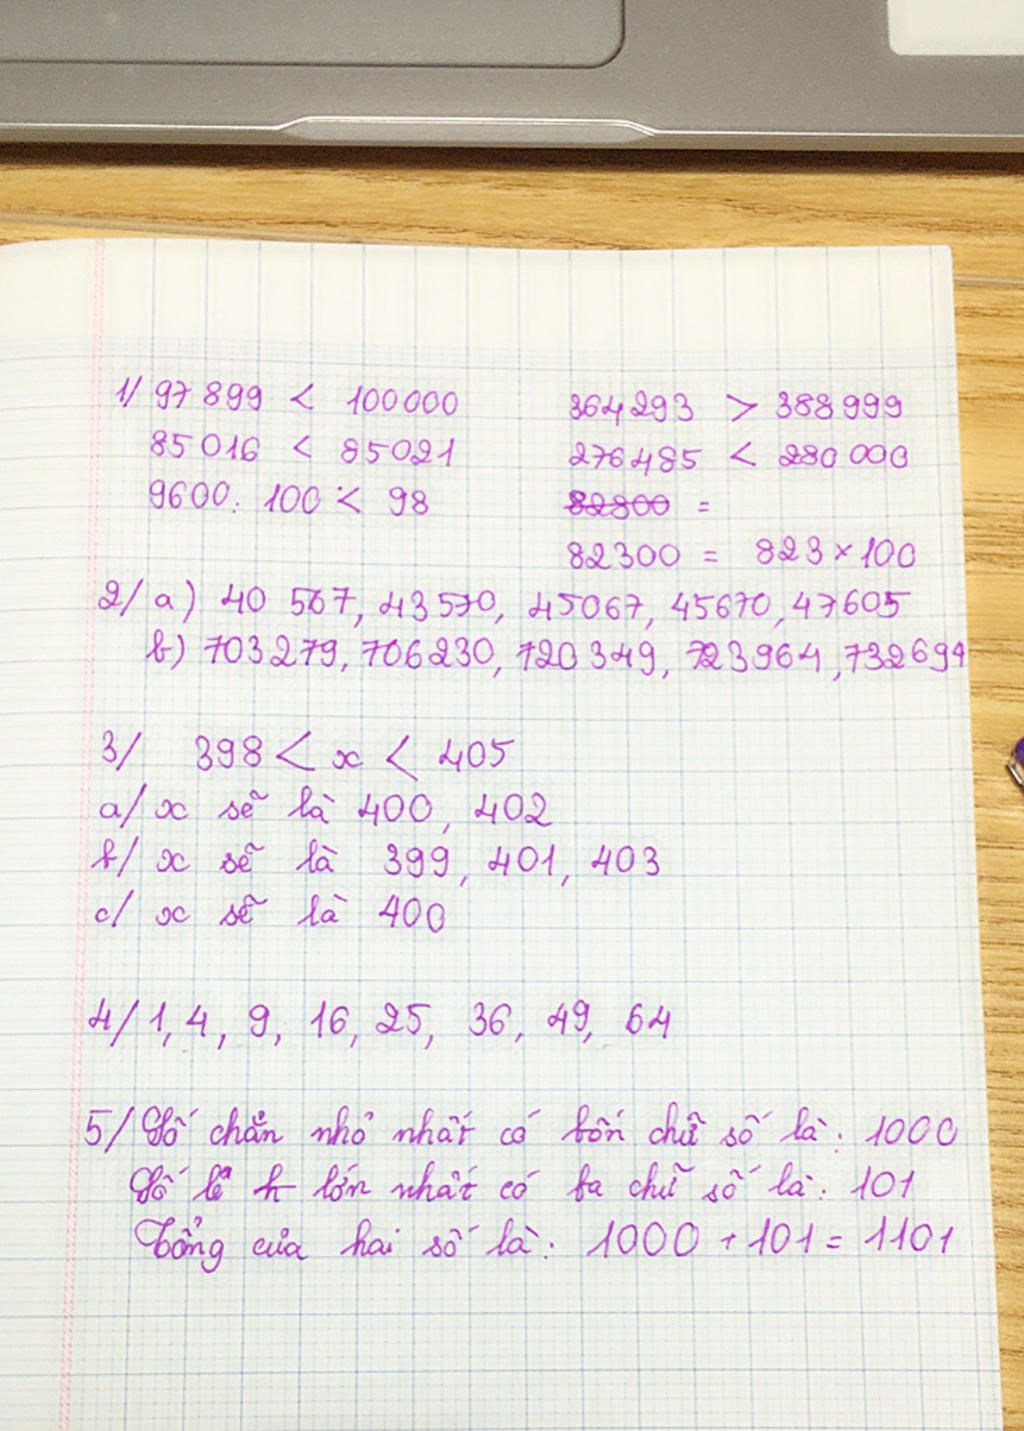 1/ 97 899 < 100 000 364 293 > 388 999
85 016 < 85 021 276 485 < 280 000
9600 : 100 < 98 82800 =
82300 = 823 × 100
2/ a) 40 567, 43 570, 45067, 45670, 47605
b) 703 279, 706 230, 720 349, 723 964, 732 694
3/ 398 < x < 405
a/ x sẽ là 400, 402
b/ x sẽ là 399, 401, 403
c/ x sẽ là 400
4/ 1, 4, 9, 16, 25, 36, 49, 64
5/ Số chẵn nhỏ nhất có bốn chữ số là: 1000
Số lẻ lớn nhất có ba chữ số là: 101
Tổng của hai số là: 1000 + 101 = 1101